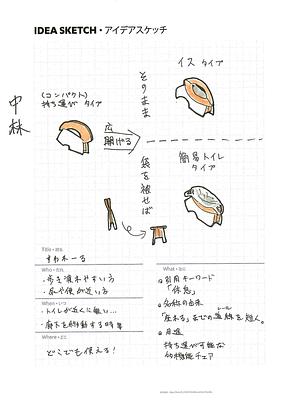 IDEA SKETCH・アイデアスケッチ
中林
(コンパクト)
持ち運び タイプ
広
開ける
そのまま
イス タイプ
袋を被せば
簡易トイレ
タイプ
Title・題名
すわれーる
Who・だれ
・歩き疲れやすい方
・お小便が近い方
When・いつ
・トイレが近くに無い…
・廊下を移動する時 等
Where・どこ
どこでも使える!
What・なに
引用キーワード
「休息」
名称の由来
「座れる」までの道線を短く。
レール
用途
持ち運び可能な
多機能チェア